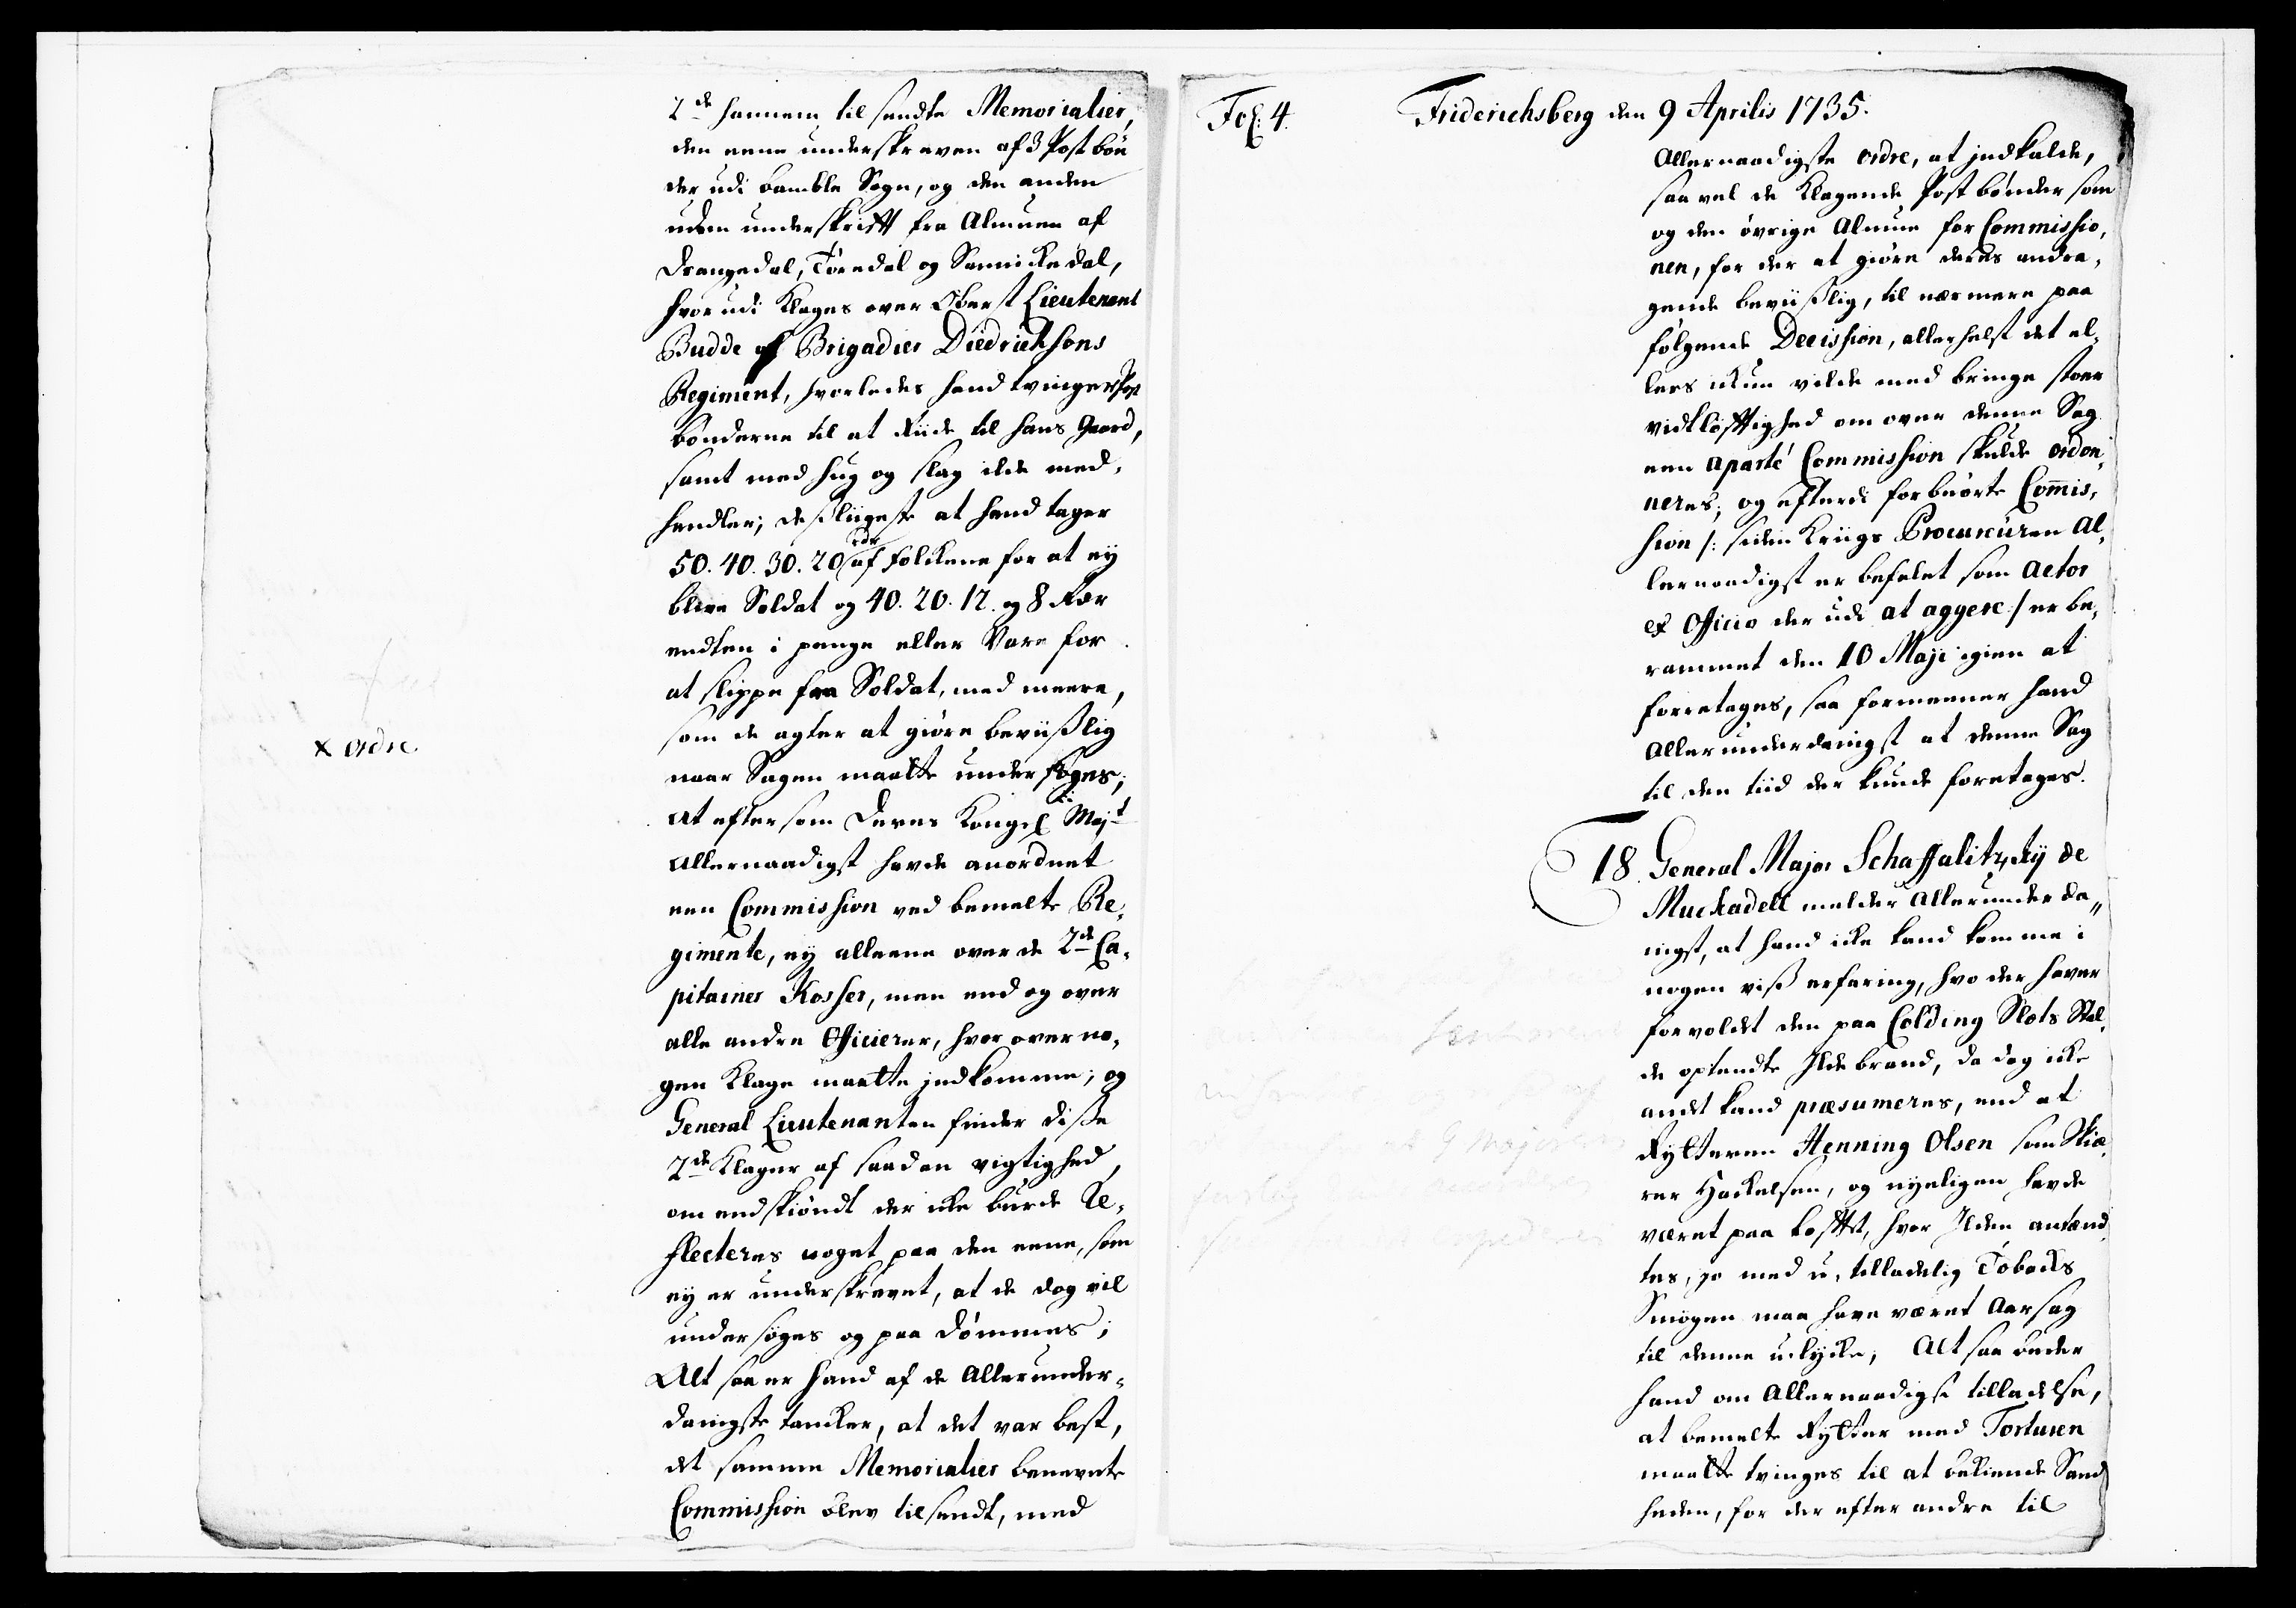 2de hannem til sendte Memorialier,
den eene underskreven af 3 Postbön
der udi bamble Sogn, og den anden
uden underskrifft fra Almuen af
Drangedal, Tørredal og Sannickedal,
hvor udi Klages over Oberst Lieutenent
Budde af Brigadier Diedrichsons
Regiment, hvorledes hand tvinger Post
bönderne til at Riide til hans Gaard,
samt med hug og slag ilde med-
handler; desligeste at hand tager
50. 40. 30. 20 rdr af folckene for at ey
blive Soldat og 40. 20. 12. og 8 Rdr
endten i penge eller Vare for
at slippe fra Soldat, med meere,
som de agter at giöre beviißlig
naar Sagen maatte undersøges;
x ordre
At eftersom Deres Kongel. Majt
Allernaadigst havde anordnet
een Commission ved bemelte Re-
gimente, ey alleene over de 2de Ca-
pitainer Kosser, men end og over
alle andre Officierer, hvor over no-
gen Klage maatte indkomme; og
General Lieutenanten finder diße
2de Klager af saadan vigtighed,
om endskiöndt der icke burde Re-
flecteres noget paa den eene, som
ey er underskrevet, at de dog vil
undersöges og paa dömmes;
Alt saa er hand af de Allerunder-
danigste tancker, at det var best,
at samme Memorialier benevnte
Commission blev tilsendt, med
Fol. 4.
Friderichsberg den 9 Aprilis 1735.
Allernaadigste ordre, at indkalde,
saa vel de Klagende Postbönder som
og den övrige Almue for Commissio-
nen, for der at giöre deres andra-
gende beviißlig, til nærmere paa
fölgende Decission, allerhelst det el-
lers ickun vilde med bringe stoer
vidtlöfftighed om over denne Sag
een aparté Commission skulde ordon-
neres; og efterdi forbrörte Commis-
sion /: siden Kriigs Procureuren Al-
lernaadigst er befalet som Actor
ex Officio der udi at aggere :/ er be-
rammet den 10 Maji igien at
forretages, saa formeener hand
Allerunderdanigst at denne Sag
til den tiid der kunde foretages.
18. General Major Schaffalitzky de
Muckadell melder Allerunderda-
nigst, at hand icke kand komme i
nogen viß erfaring, hvo der haver
forvoldet den paa Colding Slots Stal-
de optendte Ildebrand, da dog icke
andet kand præsumeres, end at
Rytteren Henning Olsen som Skiæ-
rer Hackelsen, og nyeligen havde
været paa Lofftet, hvor Ilden antænd-
tes, jo med u-tilladelig Tobacks
Smögen maa have været Aarsag
til denne ulycke; Alt saa beder
hand om Allernaadigst tilladelse,
at bemelte Rytter med Torturen
maatte tvinges til at bekiende Sand
heden, for der efter andre til